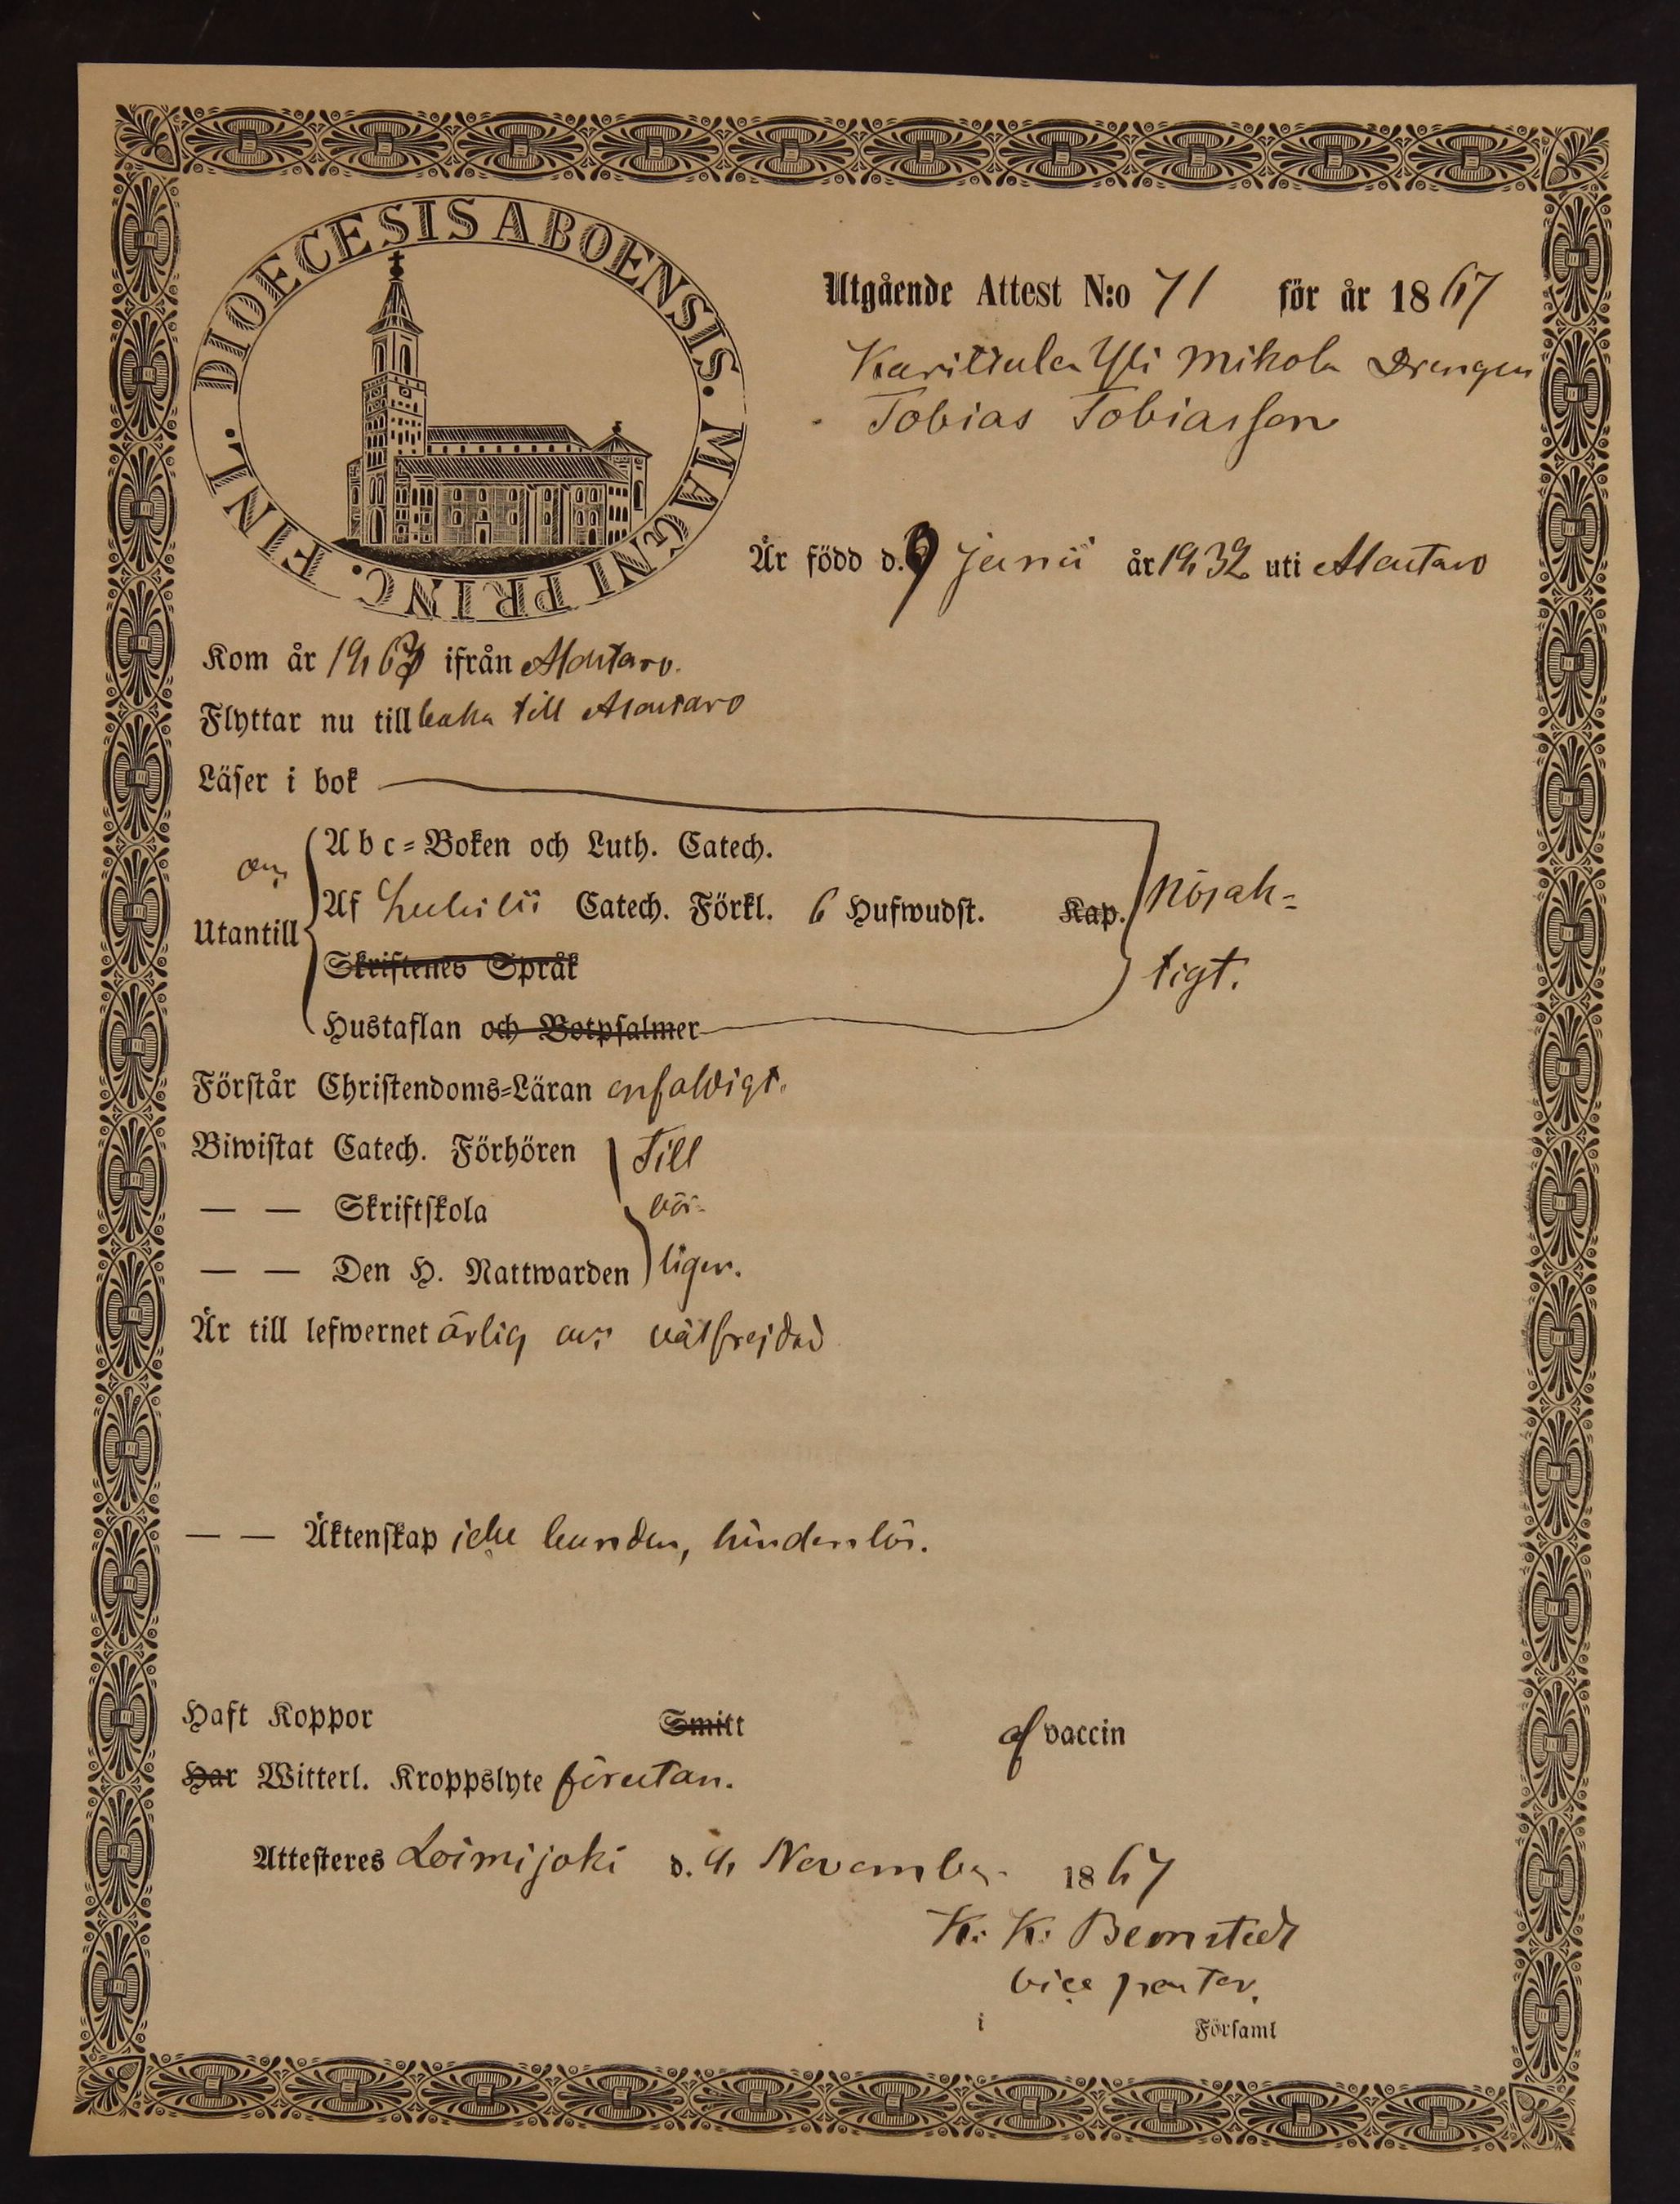 DIOECESIS ABOENSIS. MAGNI PRINC. FINL.
Utgående Attest N:o 71 för år 1867
Karittula Yli Mikola Drengen
Tobias Tobiasson
Är född d. 9 junii år 1832 uti Alastaro
Kom år 186 ifrån Alastaro.
Flyttar nu till baka till Alastaro
Läser i bok
Abc-Boken och Luth. Catech.
och
Af Catech. Förkl. 6 Hufwudst. Kap. nöjak-
Utantill
Skriftenes Språk tigt.
Hustaflan och Botpsalmer
Förstår Christendoms-Läran enfaldigt.
Biwistat Catech. Förhören Till
— — Skriftskola bör-
— — Den H. Nattwarden ligen.
Är till lefwernet ärlig och välfrejdad
— — Äktenskap icke bunden, hinderslös.
Haft Koppor Smitt af vaccin
Har Witterl. Kroppslyte förutan.
Attesteres Loimijoki d. November 1867
K. K.
vice pastor.
i Församl